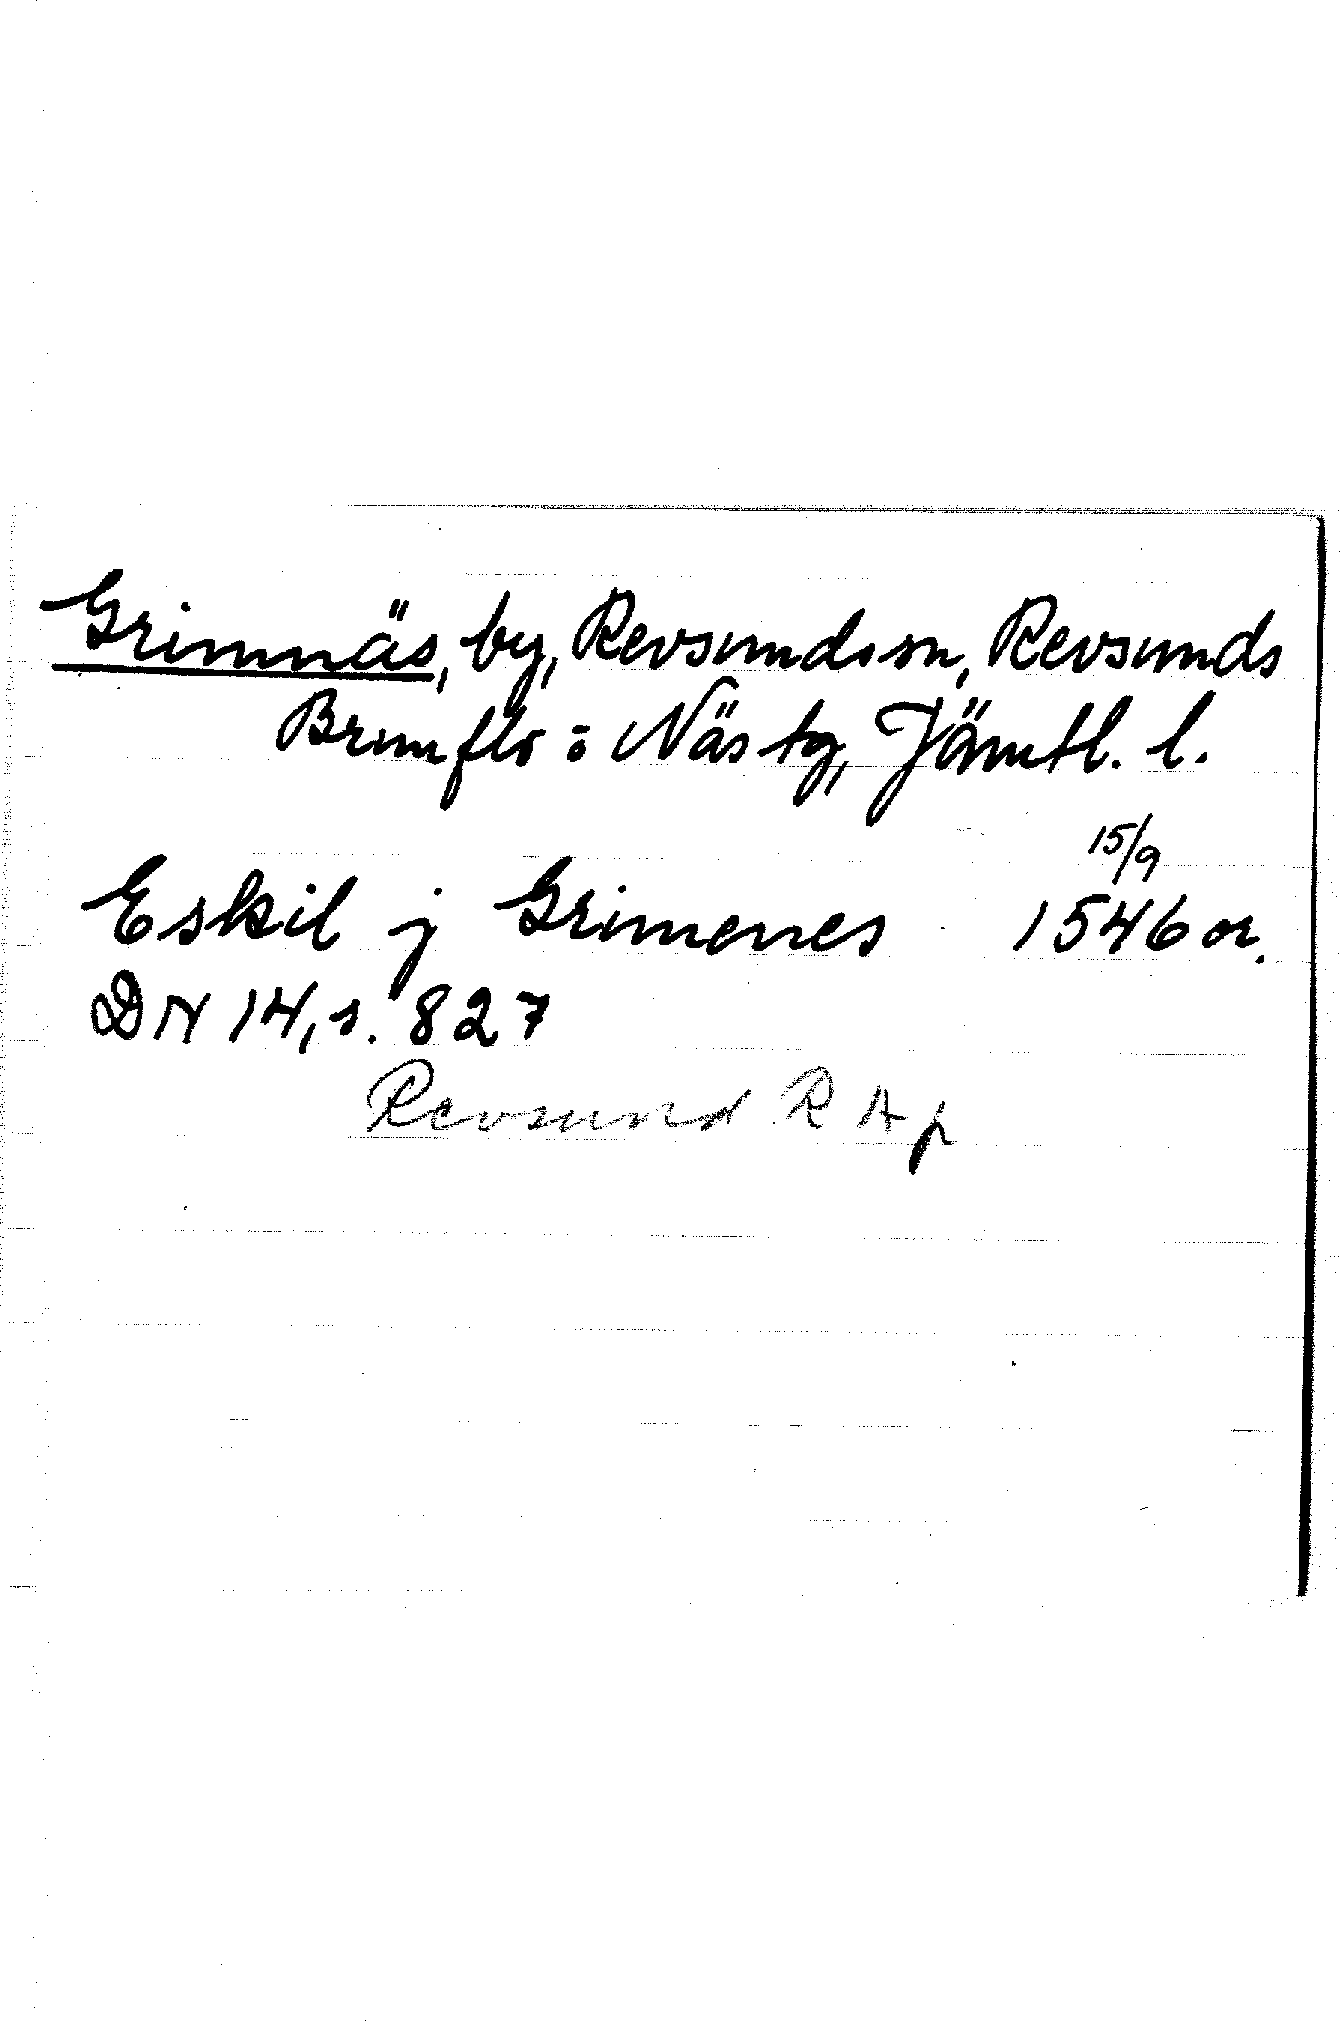 Grimnäs, by, Revsunds sn, Revsunds
Brunflo o Näs tg, Jämtl. l.
15/9
Eskil j Grimenes 1546 or.
DN 14, s. 827
Revsund R A p